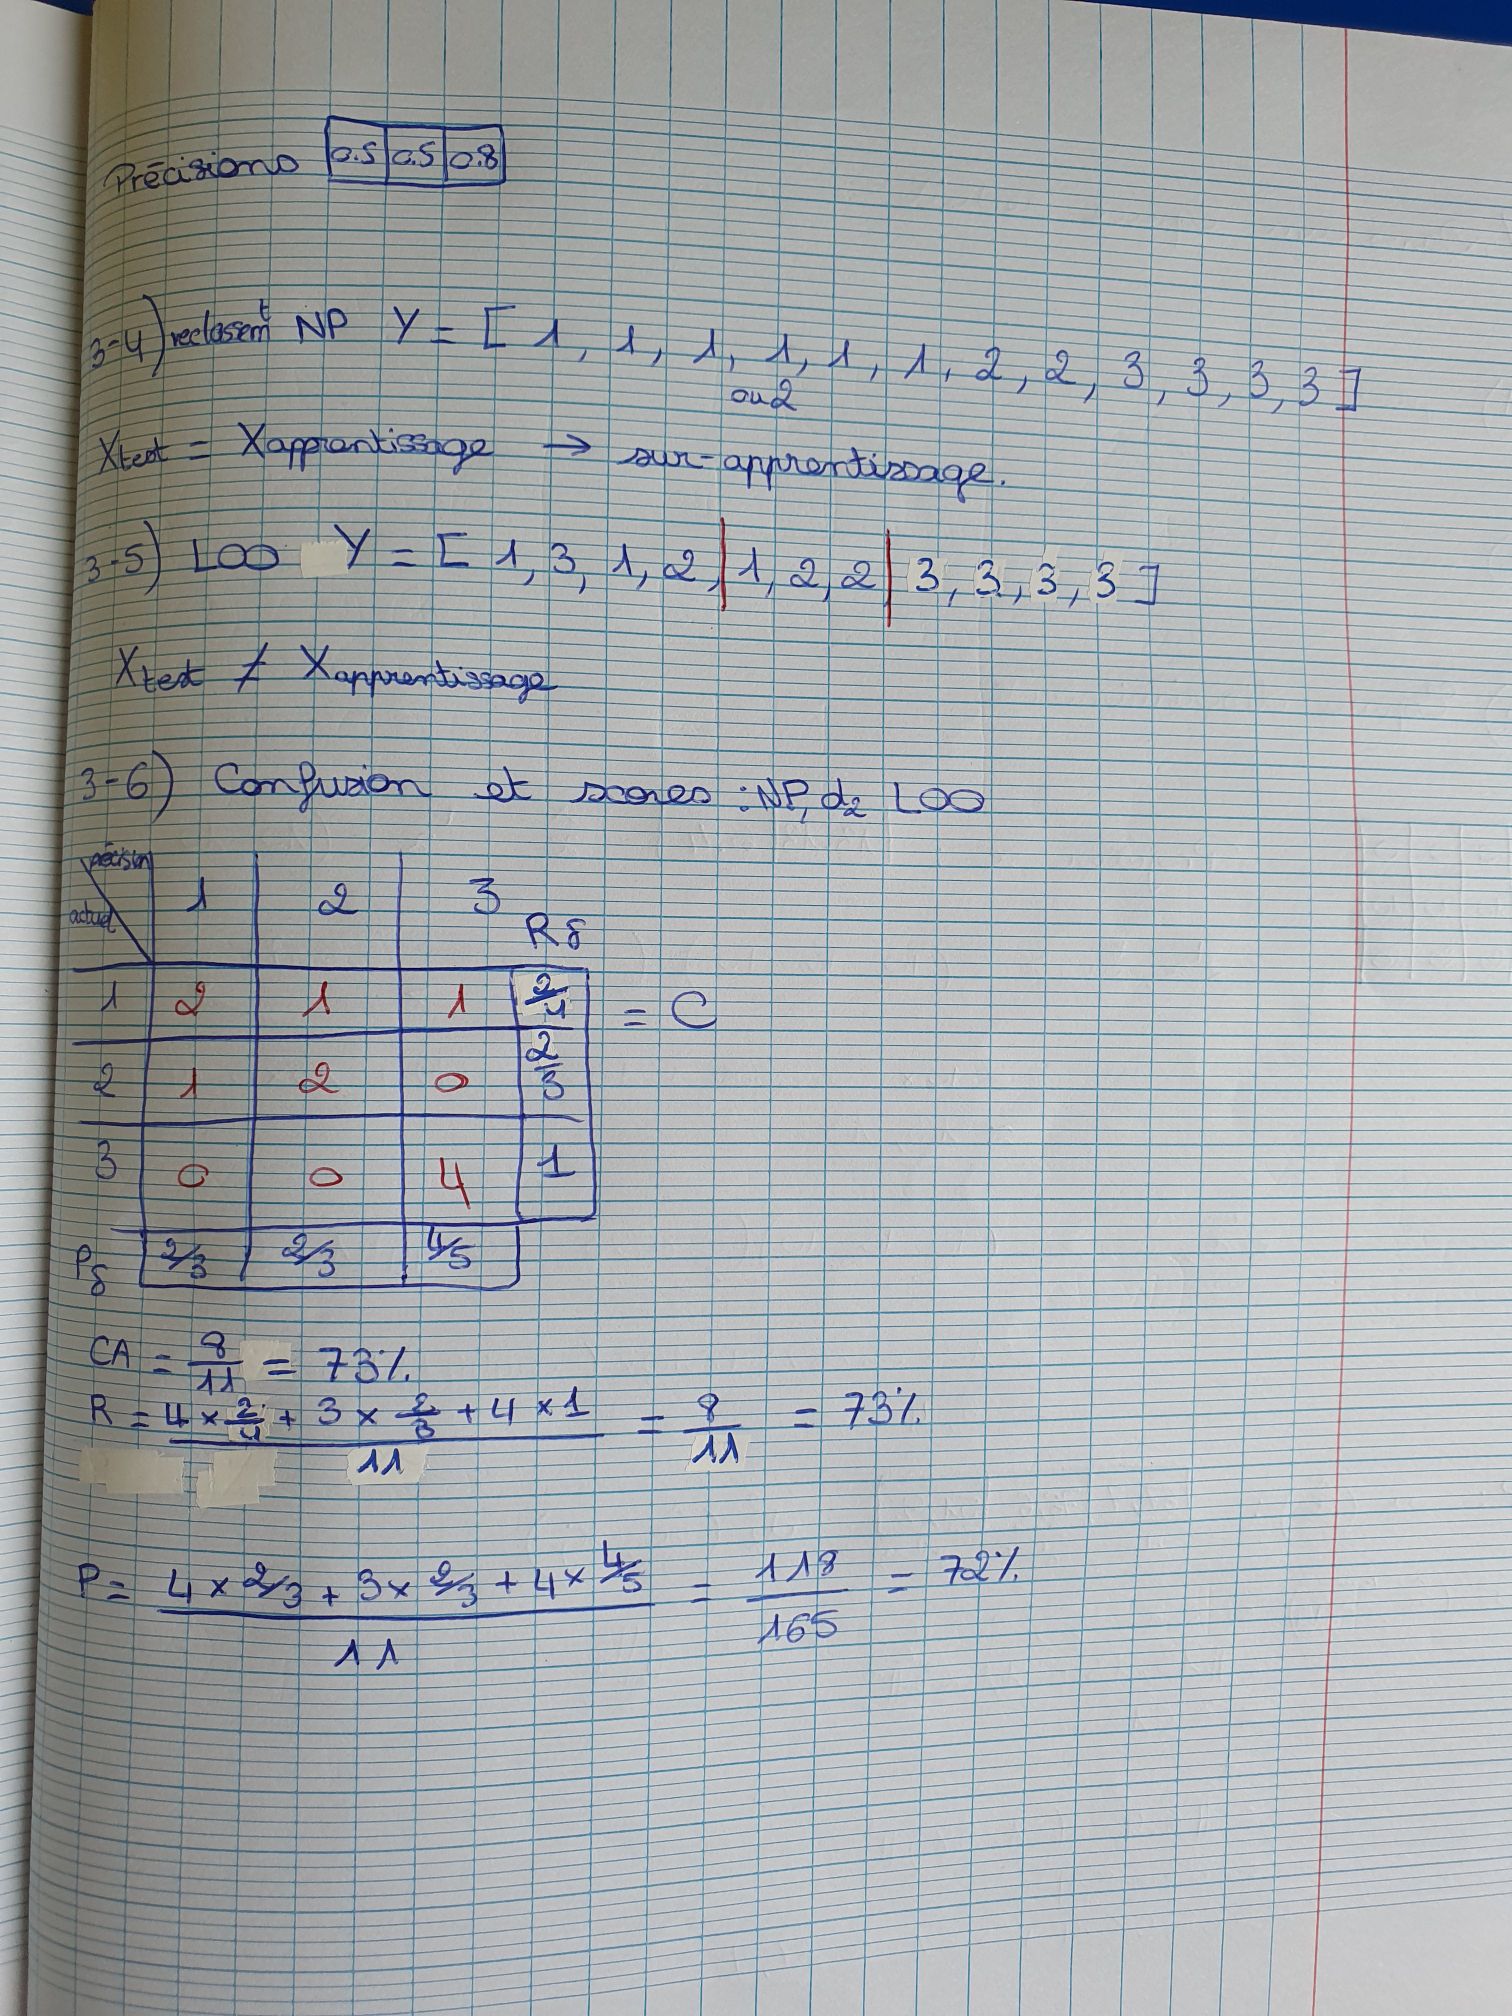 Précisions 0.5 0.5 0.8
3-4) reclassemt NP Y = [ 1, 1, 1, 1, 1, 1, 2, 2, 3, 3, 3, 3 ]
ou 2
Xtest = Xapprentissage → sur-apprentissage.
3-5) LOO Y = [ 1, 3, 1, 2, | 1, 2, 2 | 3, 3, 3, 3 ]
Xtest ≠ Xapprentissage
3-6) Confusion et scores : NP, d2 LOO
précision
actuel 1 2 3 Rδ
1 2 1 1 2/4 = C
2 1 2 0 2/3
3 0 0 4 1
Pδ 2/3 2/3 4/5
CA = 8/11 = 73%
R = (4 × 2/4 + 3 × 2/3 + 4 × 1)/11 = 8/11 = 73%
P = (4 × 2/3 + 3 × 2/3 + 4 × 4/5)/11 = 118/165 = 72%